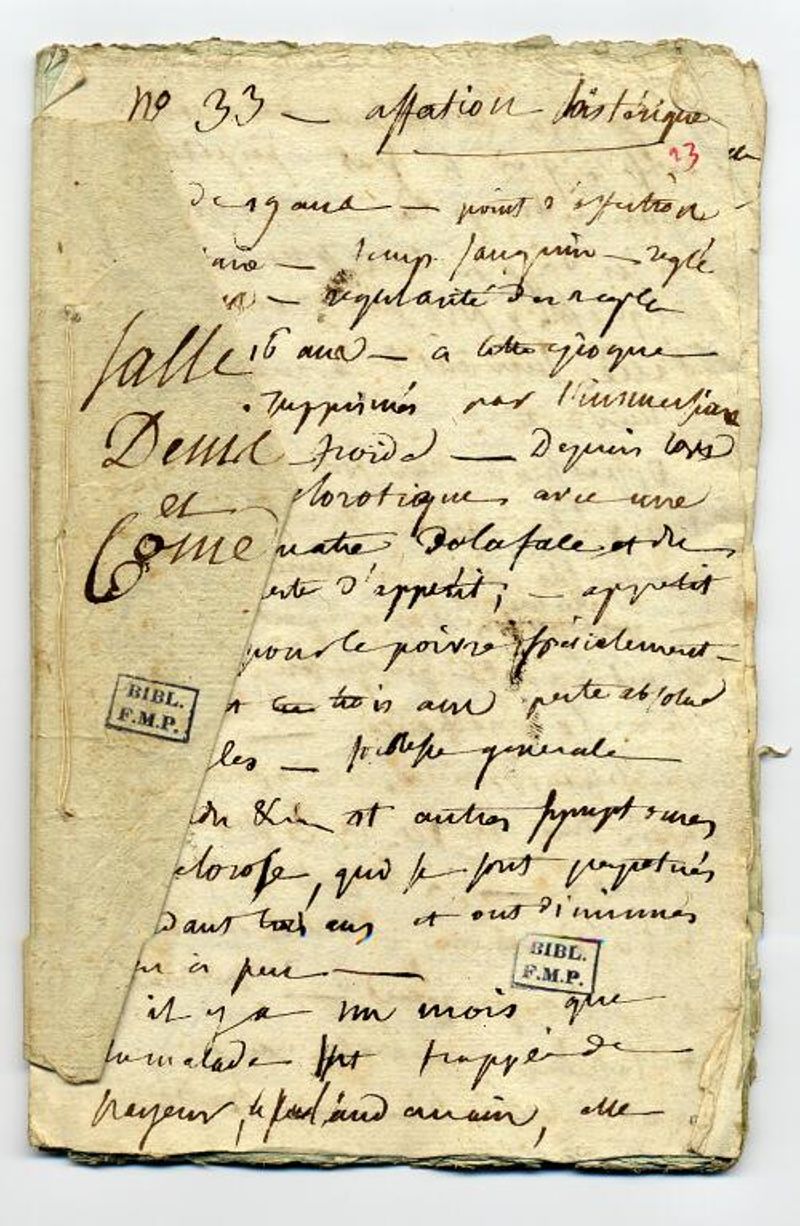 no 33 — affection histérique
23
de 19 ans — point d'affection
— temp. sanguin — reglé
— regularité des regles
16 ans — à cette epoque
supprimés par l'immersion
froide — Depuis lors
lorotique avec une
de la face et du
erte d'appétit, — appetit
pour le poivre spécialement —
trois ans perte absolue
les — foiblesse generale
et autres symptomes
clorose, qui se sont perpetués
dant trois ans et ont diminués
eu à peu —
il y a un mois que
la malade fut frappée de
frayeur, le lendemain, elle
Salle
Deme
et
Come
BIBL.
F.M.P.
BIBL.
F.M.P.